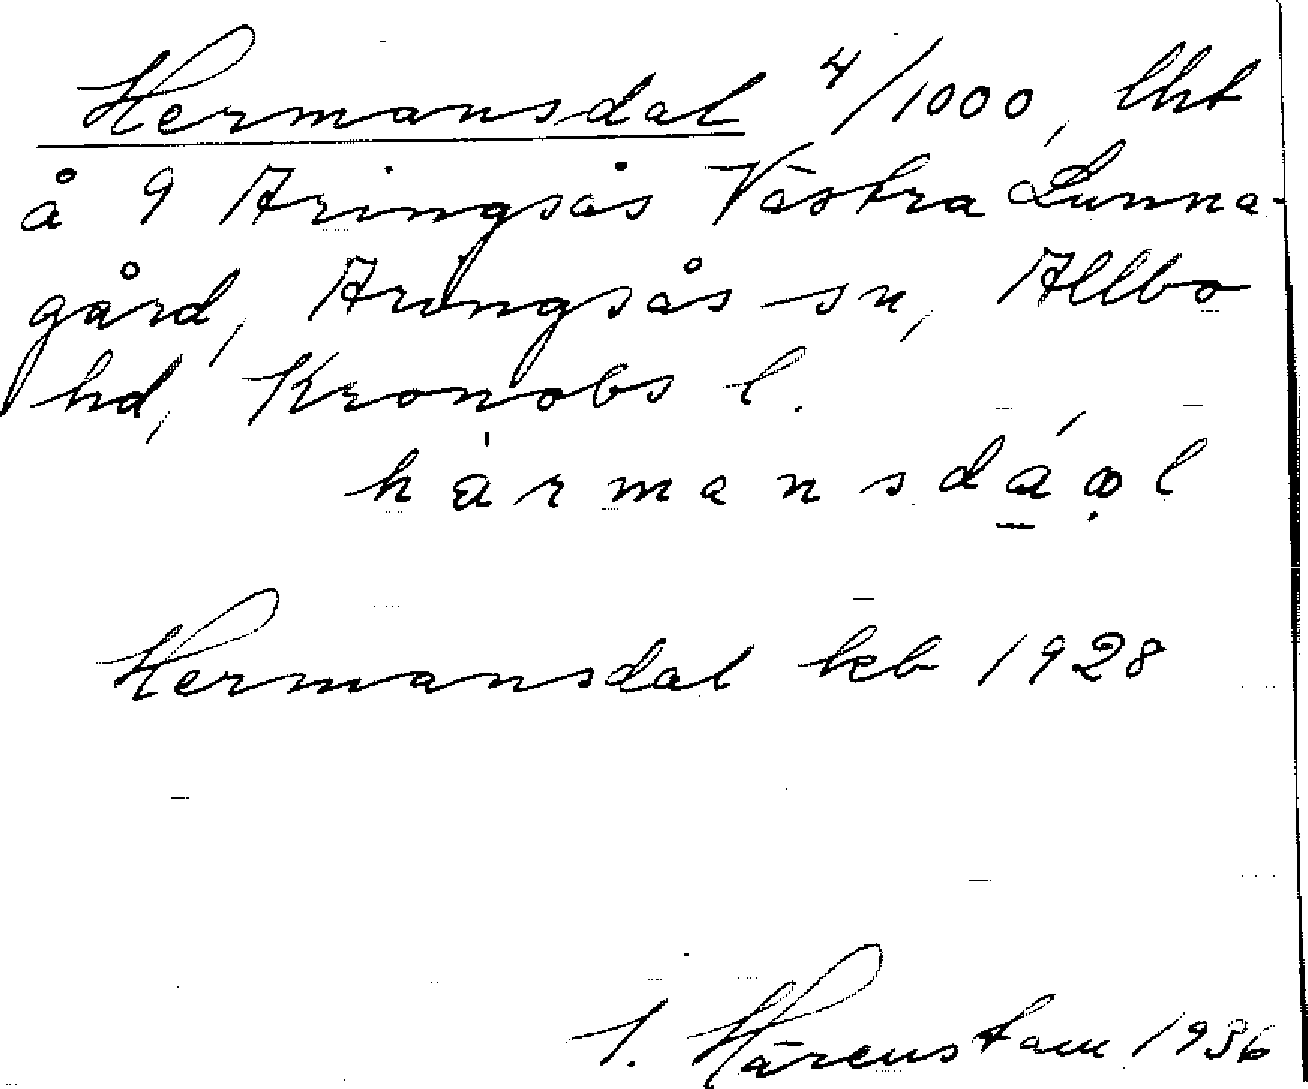 Hermansdal 4/1000, lht
å 9 Aringsås Västra Lunna-
gård, Aringsås sn, Allbo
hd, Kronobs l.
hàrmansdáαl
Hermansdal keb 1928
I. Härenstam 1936